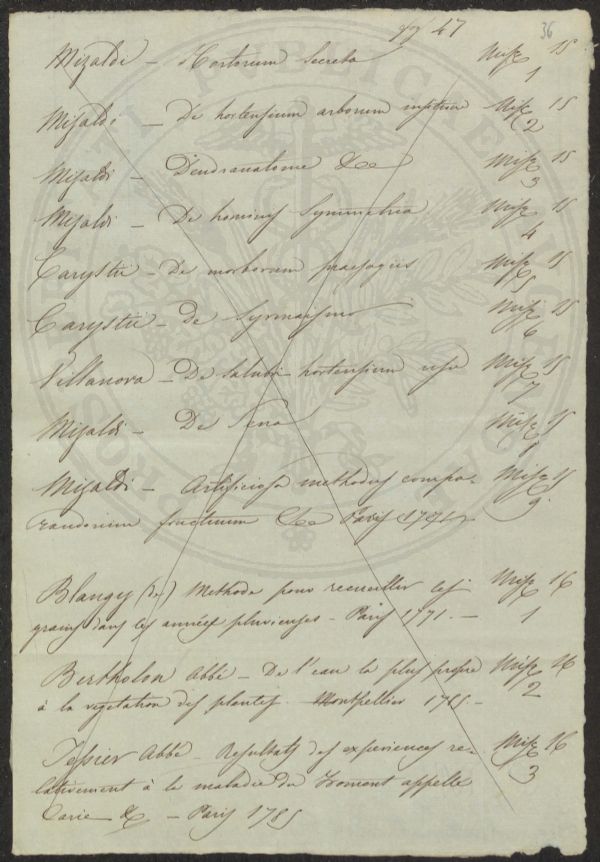 47 36
Mizaldi – Hortorum Secreta Misc 15
1
Misaldi – De hortensium arborum insitione Misc 15
2
Misaldi – Dendranatome &c Misc 15
3
Misaldi – De hominis Symmetria Misc 15
4
Carystii – De morborum praesagiis Misc 15
5
Carystii – de Syrmaismo Misc 15
6
Villanova – De salubri hortensium usu Misc 15
7
Misaldi – De Sena Misc 15
Misaldi – Artificiosa methodus compa-
randorum fructuum &c Paris Misc 15
9
Blangy (de) Methode pour recueillir les Misc 16
grains dans les années pluvieuses – Paris 1771. – 1
Bertholon Abbé – De l'eau la plus propre Misc 16
à la vegetation des plantes. Montpellier 1785 – 2
Tessier Abbé – Resultats des experiences re- Misc 16
lativement à la maladie du froment appellé 3
Carie & – Paris 1785